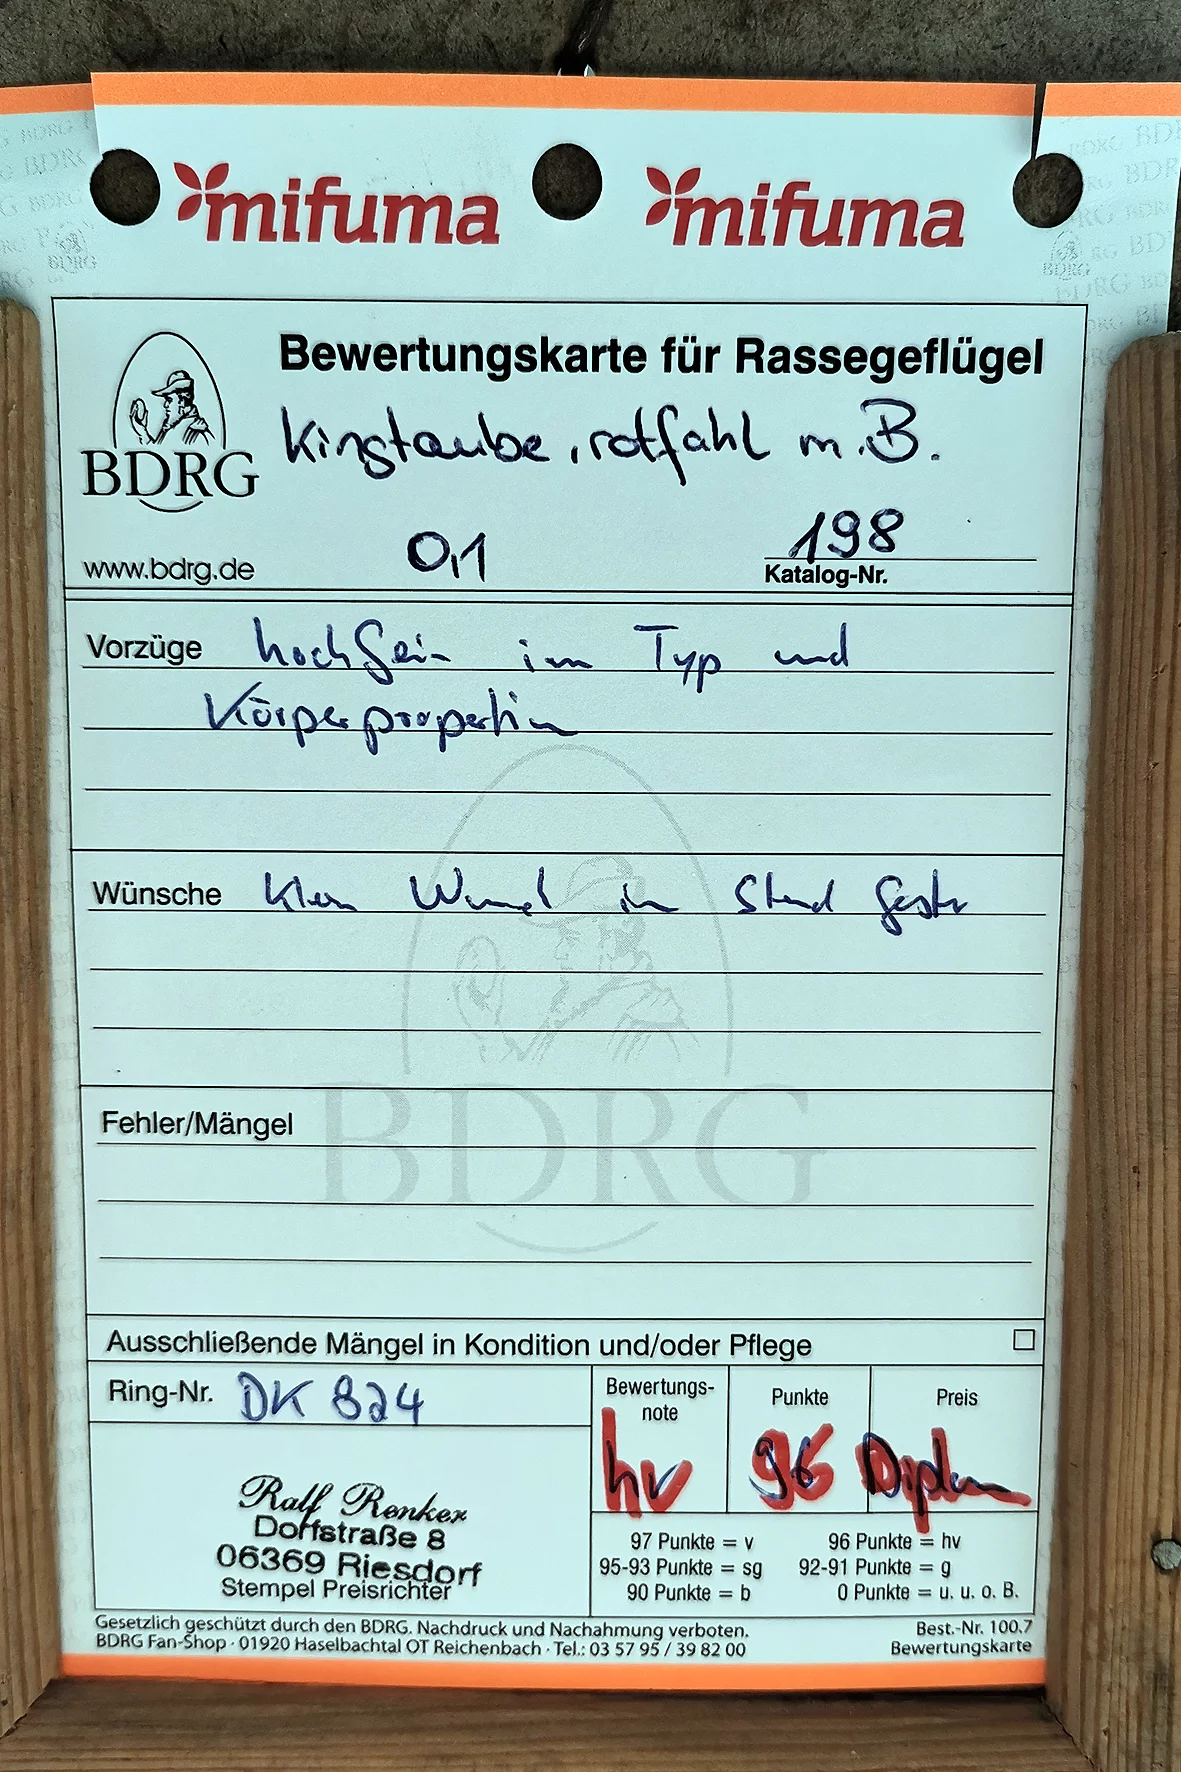 mifuma mifuma
Bewertungskarte für Rassegeflügel
BDRG
Kingtaube, rotfahl m. B.
www.bdrg.de
0,1
198
Katalog-Nr.
Vorzüge hochfein im Typ und
Körperproportion
Wünsche Klein Wunsch im Stand fester
BDRG
Fehler/Mängel
Ausschließende Mängel in Kondition und/oder Pflege
Ring-Nr. DK 824
Bewertungs-
note
Punkte
Preis
hv 96 Diplom
Ralf Renker
Dorfstraße 8
06369 Riesdorf
Stempel Preisrichter
97 Punkte = v 96 Punkte = hv
95-93 Punkte = sg 92-91 Punkte = g
90 Punkte = b 0 Punkte = u. u. o. B.
Gesetzlich geschützt durch den BDRG. Nachdruck und Nachahmung verboten.
BDRG Fan-Shop · 01920 Haselbachtal OT Reichenbach · Tel.: 03 57 95 / 39 82 00
Best.-Nr. 100.7
Bewertungskarte